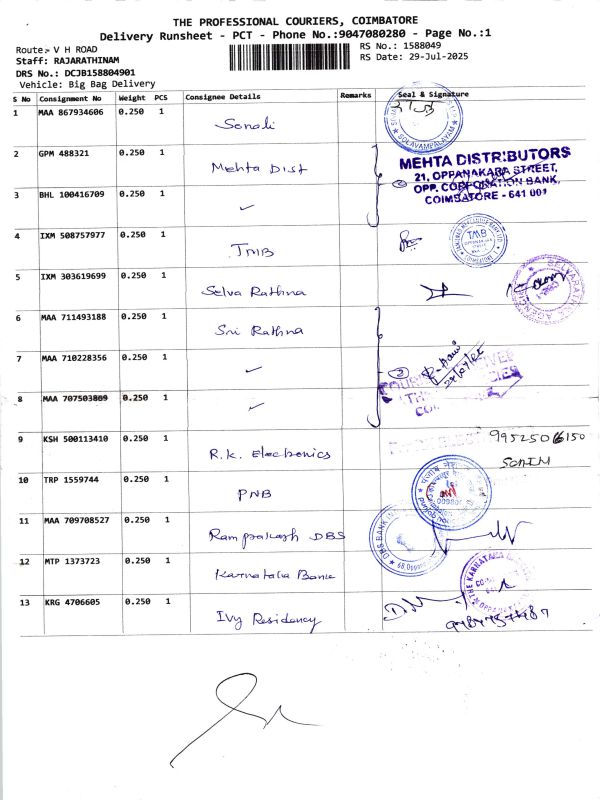 THE PROFESSIONAL COURIERS, COIMBATORE
Delivery Runsheet - PCT - Phone No.:9047080280 - Page No.:1
Route:- V H ROAD
Staff: RAJARATHINAM
DRS No.: DCJB158804901
Vehicle: Big Bag Delivery
RS No.: 1588049
RS Date: 29-Jul-2025
S No Consignment No Weight PCS Consignee Details Remarks Seal & Signature
1 MAA 867934606 0.250 1 Sonali
2 GPM 488321 0.250 1 Mehta Dist
MEHTA DISTRIBUTORS
21, OPPANAKARA STREET,
OPP. CORPORATION BANK,
COIMBATORE - 641 001
3 BHL 100416709 0.250 1 ✓
4 IXM 508757977 0.250 1 TMB
TMB
5 IXM 303619699 0.250 1 Selva Rathna
6 MAA 711493188 0.250 1 Sri Rathna
7 MAA 710228356 0.250 1 ✓
8 MAA 707503809 0.250 1 ✓
9 KSH 500113410 0.250 1 R.K. Electronics
10 TRP 1559744 0.250 1 PNB
11 MAA 709708527 0.250 1 Ramprakash DBS
DBS BANK
12 MTP 1373723 0.250 1 Karnataka Bank
THE KARNATAKA
13 KRG 4706605 0.250 1 Ivy Residency